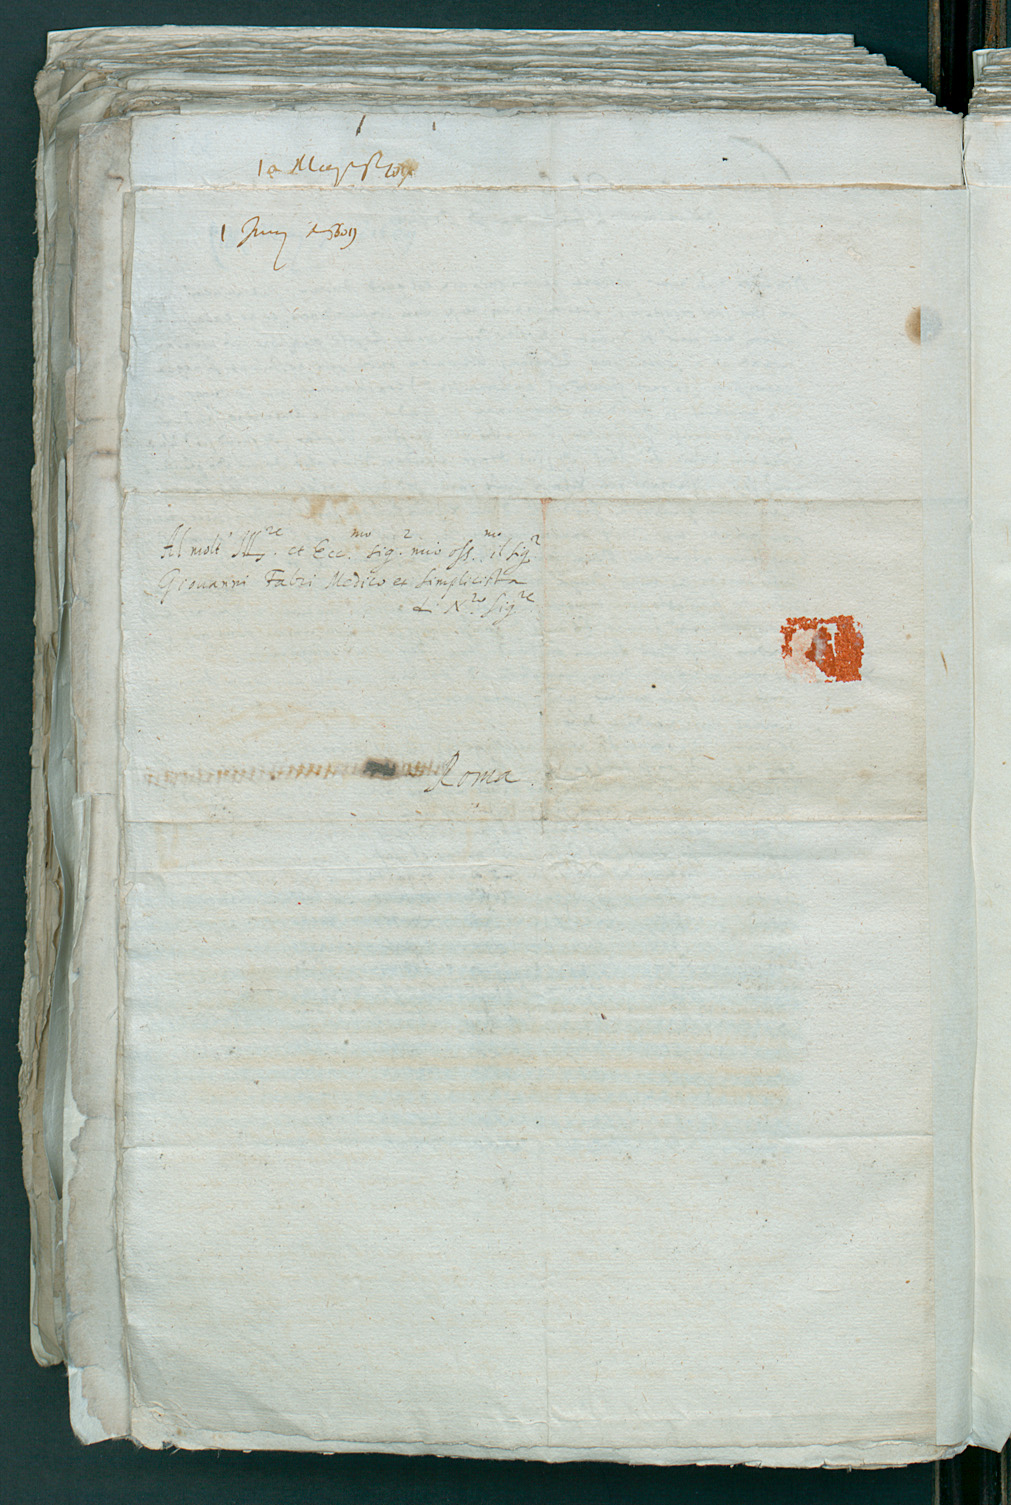 1 Juny 1609
Al molt' Ill.re et Ecc.mo Sig.r mio oss.mo il Sig.r
Giovanni Fabri Medico et Simplicista
di N.ro Sig.re
Roma.